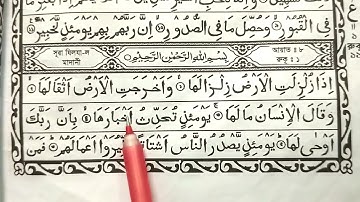 فِی الْقُبُوْرِ ۙ وَحُصِّلَ مَا فِی الصُّدُوْرِ ۙ اِنَّ رَبَّهُمْ بِهِمْ یَوْمَئِذٍ لَّخَبِیْرٌ
সূরা যিলযা-ল
মাদানী
بِسْمِ اللّٰهِ الرَّحْمٰنِ الرَّحِیْمِ
আয়াত ঃ ৮
রুকু ঃ ১
اِذَا زُلْزِلَتِ الْاَرْضُ زِلْزَالَهَا ۙ وَاَخْرَجَتِ الْاَرْضُ اَثْقَالَهَا ۙ
وَقَالَ الْاِنْسَانُ مَا لَهَا ۚ یَوْمَئِذٍ تُحَدِّثُ اَخْبَارَهَا ۙ بِاَنَّ رَبَّكَ
اَوْحٰی لَهَا ؕ یَوْمَئِذٍ یَّصْدُرُ النَّاسُ اَشْتَاتًا لِّیُرَوْا اَعْمَالَهُمْ ؕ فَمَنْ